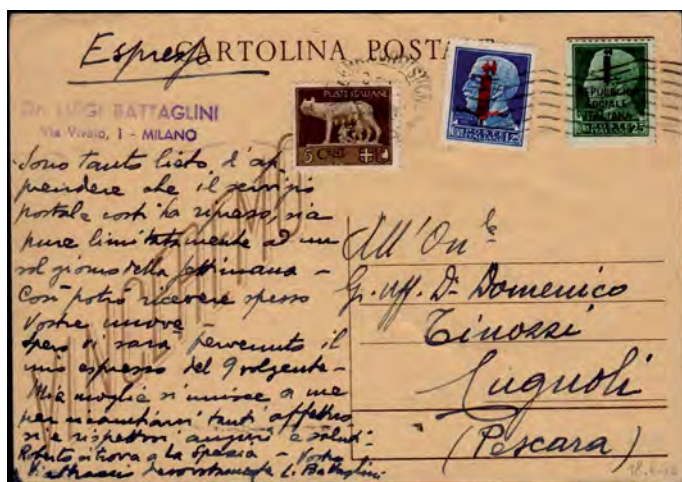 Espresso
CARTOLINA POSTA
Dr. LUIGI BATTAGLINI
Via Vivaio, 1 - MILANO
POSTE ITALIANE
5 CENT
REPUBBLICA
SOCIALE
ITALIANA
25
VINCEREMO
Sono tanto lieto d'ap
prendere che il servizio
postale costì ha ripreso, sia
pure limitatamente ad un
sol giorno della settimana -
Così potrò ricevere spesso
Vostre nuove -
Spero Vi sarà pervenuto il
mio espresso del 9 volgente -
Mia moglie si unisce a me
per ricambiarvi tanti affettuo
si e rispettosi auguri e saluti -
Roberto si trova a La Spezia - Vostro
devotamente L. Battaglini
All' On.le
Gr. Uff. Dr. Domenico
Tinozzi
Cugnoli
(Pescara)